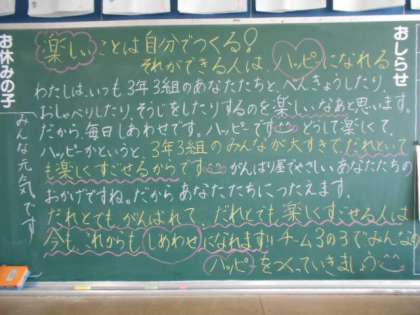 おしらせ
楽しいことは自分でつくる!
それができる人は、ハッピーになれる
わたしは、いつも3年3組のあなたたちと、べんきょうしたり、
おしゃべりしたり、そうじをしたりするのを楽しいなあと思います。
だから、毎日しあわせです。ハッピーです どうして楽しくて、
ハッピーかというと、3年3組のみんなが大すきで、だれといて
も楽しくすごせるからです がんばり屋でやさしいあなたたちの
おかげですね。だから、あなたたちにつたえます。
だれとでもがんばれて、だれとでも楽しくすごせる人は、
今も、これからもしあわせになれます!!チーム3の3でみんなの
ハッピーをつくっていきましょう
お休みの子
みんな元気です